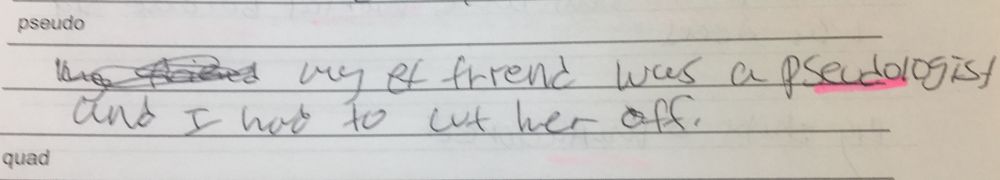 pseudo
my ex friend was a pseudologist
and I had to cut her off.
quad